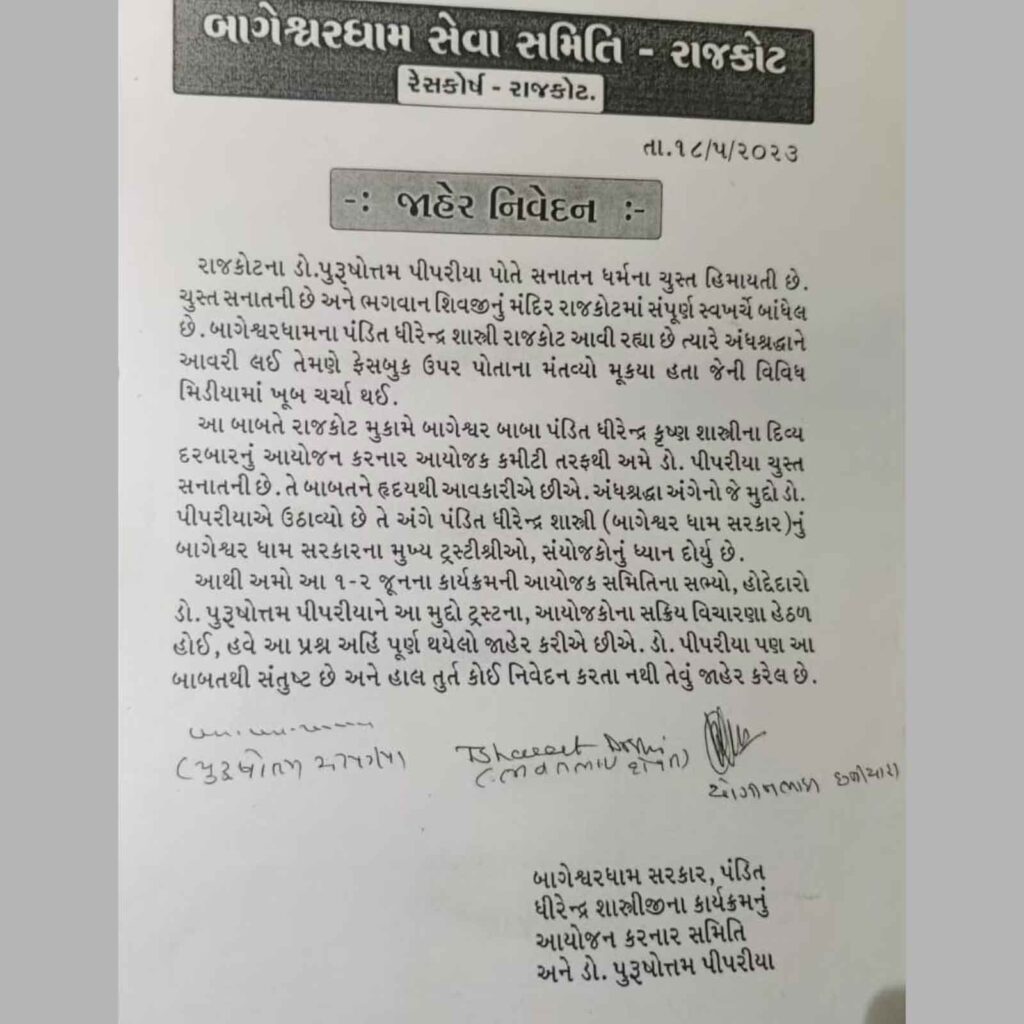 બાગેશ્વરધામ સેવા સમિતિ - રાજકોટ
રેસકોર્ષ - રાજકોટ.
તા.૧૮/૫/૨૦૨૩
-: જાહેર નિવેદન :-
રાજકોટના ડો.પુરૂષોત્તમ પીપરીયા પોતે સનાતન ધર્મના ચુસ્ત હિમાયતી છે.
ચુસ્ત સનાતની છે અને ભગવાન શિવજીનું મંદિર રાજકોટમાં સંપૂર્ણ સ્વખર્ચે બાંધેલ
છે. બાગેશ્વરધામના પંડિત ધીરેન્દ્ર શાસ્ત્રી રાજકોટ આવી રહ્યા છે ત્યારે અંધશ્રદ્ધાને
આવરી લઈ તેમણે ફેસબુક ઉપર પોતાના મંતવ્યો મૂકયા હતા જેની વિવિધ
મિડીયામાં ખૂબ ચર્ચા થઈ.
આ બાબતે રાજકોટ મુકામે બાગેશ્વર બાબા પંડિત ધીરેન્દ્ર કૃષ્ણ શાસ્ત્રીના દિવ્ય
દરબારનું આયોજન કરનાર આયોજક કમીટી તરફથી અમે ડો. પીપરીયા ચુસ્ત
સનાતની છે. તે બાબતને હૃદયથી આવકારીએ છીએ. અંધશ્રદ્ધા અંગેનો જે મુદ્દો ડો.
પીપરીયાએ ઉઠાવ્યો છે તે અંગે પંડિત ધીરેન્દ્ર શાસ્ત્રી (બાગેશ્વર ધામ સરકાર)નું
બાગેશ્વર ધામ સરકારના મુખ્ય ટ્રસ્ટીશ્રીઓ, સંયોજકોનું ધ્યાન દોર્યુ છે.
આથી અમો આ ૧-૨ જૂનના કાર્યક્રમની આયોજક સમિતિના સભ્યો, હોદ્દેદારો
ડો. પુરૂષોત્તમ પીપરીયાને આ મુદ્દો ટ્રસ્ટના, આયોજકોના સક્રિય વિચારણા હેઠળ
હોઈ, હવે આ પ્રશ્ન અહિં પૂર્ણ થયેલો જાહેર કરીએ છીએ. ડો. પીપરીયા પણ આ
બાબતથી સંતુષ્ટ છે અને હાલ તુર્ત કોઈ નિવેદન કરતા નથી તેવું જાહેર કરેલ છે.
બાગેશ્વરધામ સરકાર, પંડિત
ધીરેન્દ્ર શાસ્ત્રીજીના કાર્યક્રમનું
આયોજન કરનાર સમિતિ
અને ડો. પુરૂષોત્તમ પીપરીયા